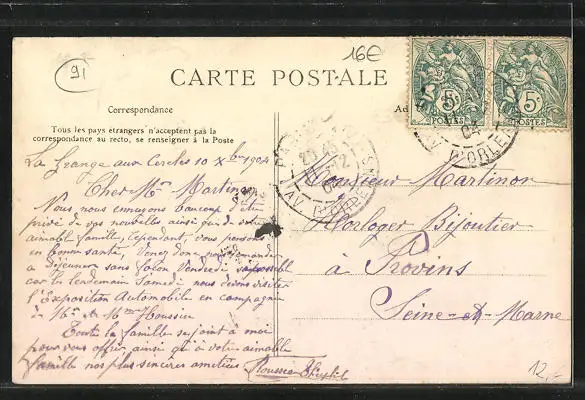 91
16€
CARTE POSTALE
Correspondance
Tous les pays etrangers n'acceptent pas la
correspondance au recto, se renseigner à la Poste
Ad
5c 5c
POSTES POSTES
AV. D'ORLEANS
La Grange aux Cercles 10 Xbre 1904
Cher Mr Martinor
Nous nous ennuyons beaucoup d'être
privé de vos nouvelles ainsi que de votre
aimable famille, Cependant, vous pensons
en bonne santé, Venez donc nous demander
à Déjeuner sans façon Vendredi si possible
car le lendemain Samedi nous devons visiter
l'Exposition Automobile en compagnie
de Mr et Mme Houssin
Toute la famille se joint à moi
pour vous offrir ainsi qu'à votre aimable
famille nos plus sincères amitiés
Monsieur Martinor
Horloger Bijoutier
à Provins
Seine-et-Marne
12,-